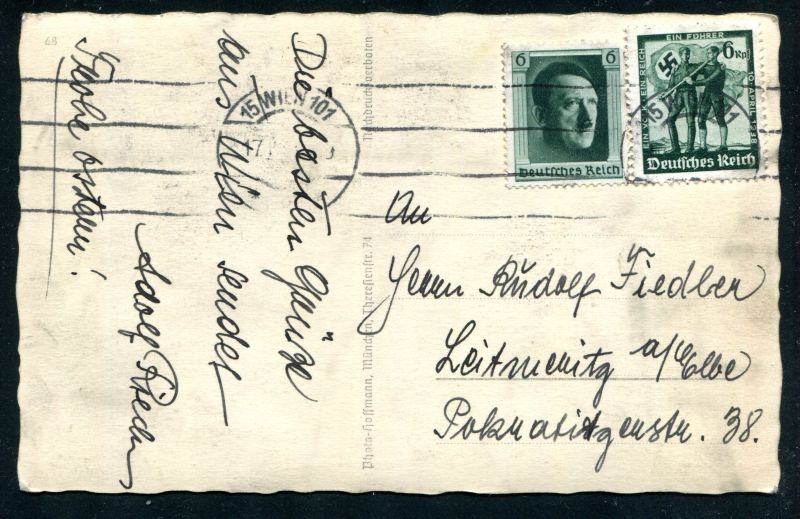 68
Die besten Grüße
aus Wien sendet
Adolf
Frohe Ostern!
15 WIEN 101
Nachdruck verboten
Photo-Hoffmann, München, Theresienstr. 74
6 6
Deutsches Reich
EIN VOLK EIN REICH
EIN FÜHRER
10. APRIL 1938
6 Rpf
Deutsches Reich
An
Herrn Rudolf Fiedler
Leitmeritz a/Elbe
38.